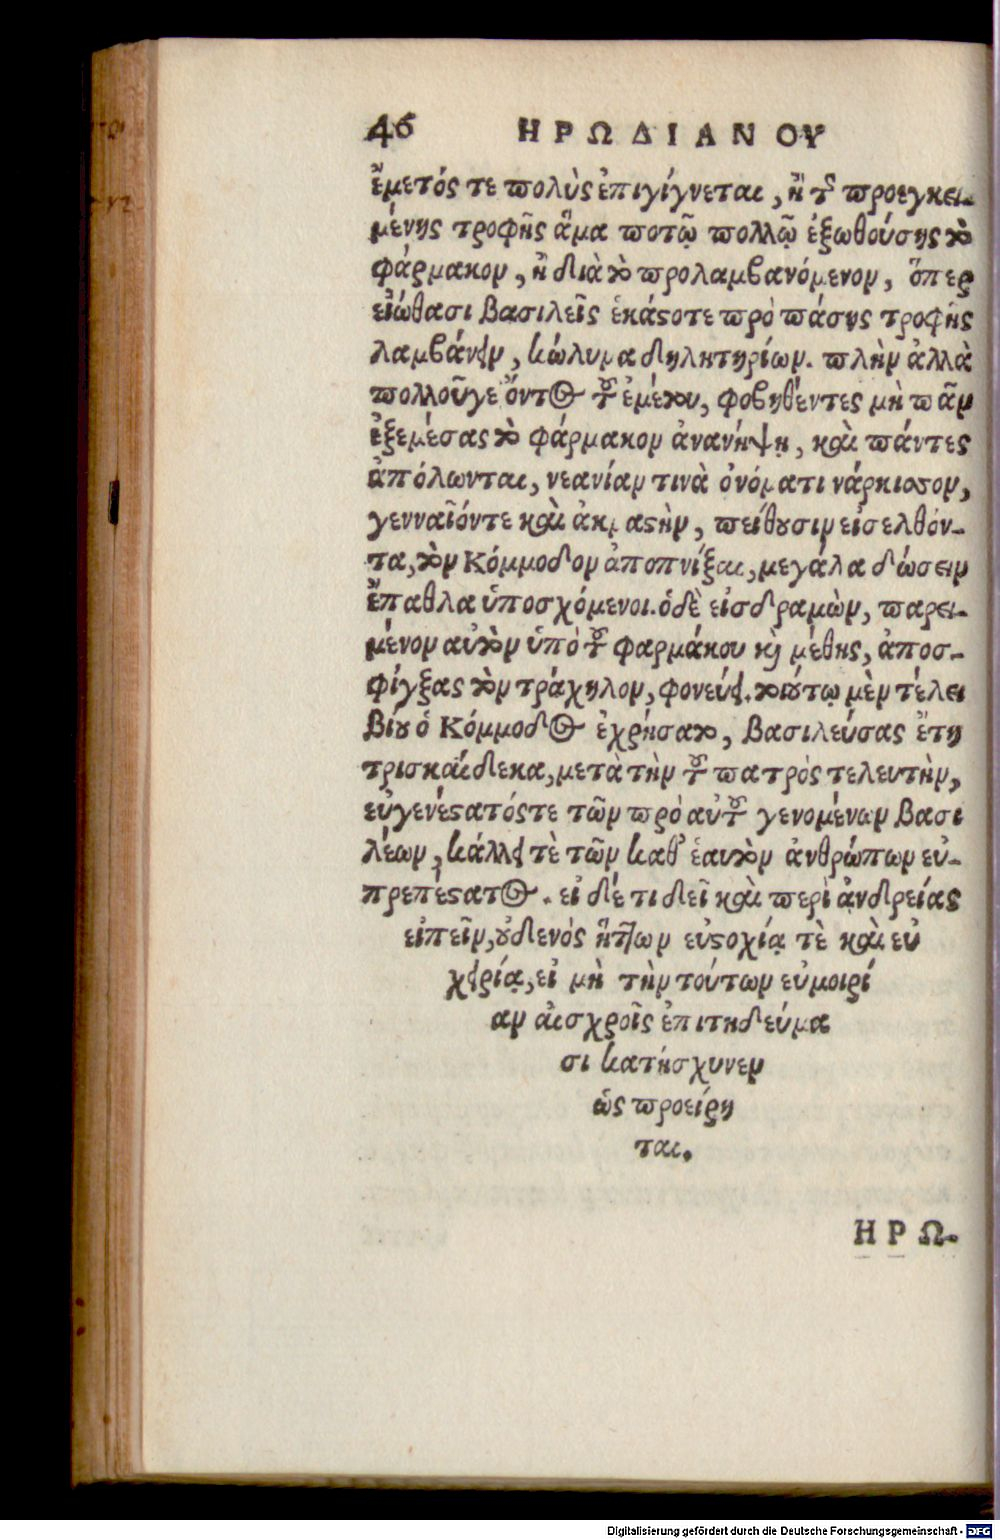 46 ΗΡΩΔΙΑΝΟΥ
ἔμετός τε πολὺς ἐπιγίγνεται, ἢ τῆς προεγκει-
μένης τροφῆς ἅμα ποτῷ πολλῷ ἐξωθούσης τὸ
φάρμακον, ἢ διὰ τὸ προλαμβανόμενον, ὅπερ
εἰώθασι βασιλεῖς ἑκάστοτε πρὸ πάσης τροφῆς
λαμβάνειν, κώλυμα δηλητηρίων. πλὴν ἀλλὰ
πολλοῦγε ὄντος τοῦ ἐμέτου, φοβηθέντες μὴ πᾶν
ἐξεμέσας τὸ φάρμακον ἀνανήψῃ, καὶ πάντες
ἀπόλωνται, νεανίαν τινὰ ὀνόματι νάρκισσον,
γενναῖόντε καὶ ἀκμαστὴν, πείθουσιν εἰσελθόν-
τα, τὸν Κόμμοδον ἀποπνίξαι, μεγάλα δώσειν
ἔπαθλα ὑποσχόμενοι. ὁδὲ εἰσδραμὼν, παρει-
μένον αὐτὸν ὑπὸ τοῦ φαρμάκου καὶ μέθης, ἀποσ-
φίγξας τὸν τράχηλον, φονεύει. τοιούτῳ μὲν τέλει
βίου ὁ Κόμμοδος ἐχρήσατο, βασιλεύσας ἔτη
τρισκαίδεκα, μετὰ τὴν τοῦ πατρὸς τελευτὴν,
εὐγενέστατόστε τῶν πρὸ αὐτοῦ γενομένων βασι
λέων, κάλλει τὲ τῶν καθ' ἑαυτὸν ἀνθρώπων εὐ-
πρεπέστατος. εἰ δέ τι δεῖ καὶ περὶ ἀνδρείας
εἰπεῖν, οὐδενός ἥττων εὐστοχίᾳ τὲ καὶ εὐ
χειρίᾳ, εἰ μὴ τὴν τούτων εὐμοιρί
αν αἰσχροῖς ἐπιτηδεύμα
σι κατῄσχυνεν
ὡς προείρη
ται.
ΗΡΩ-
Digitalisierung gefördert durch die Deutsche Forschungsgemeinschaft - DFG